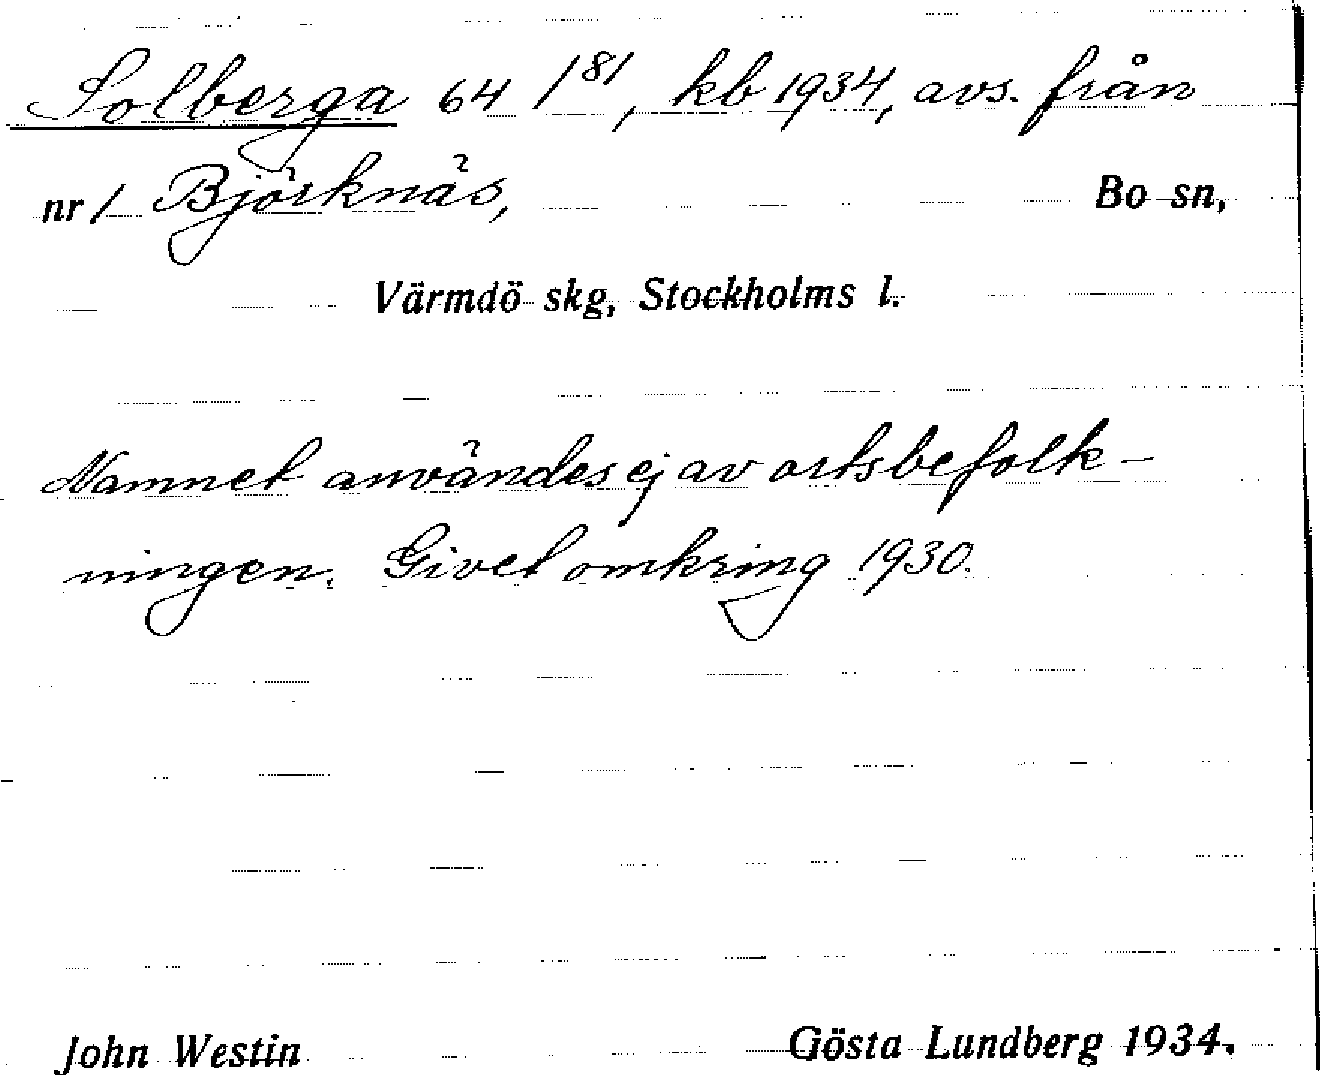 Solberga 64 /81, kb 1934, avs. från
nr 1 Björknäs, Bo sn,
Värmdö skg, Stockholms l.
Namnet användes ej av ortsbefolk-
ningen. Givet omkring 1930.
John Westin Gösta Lundberg 1934.